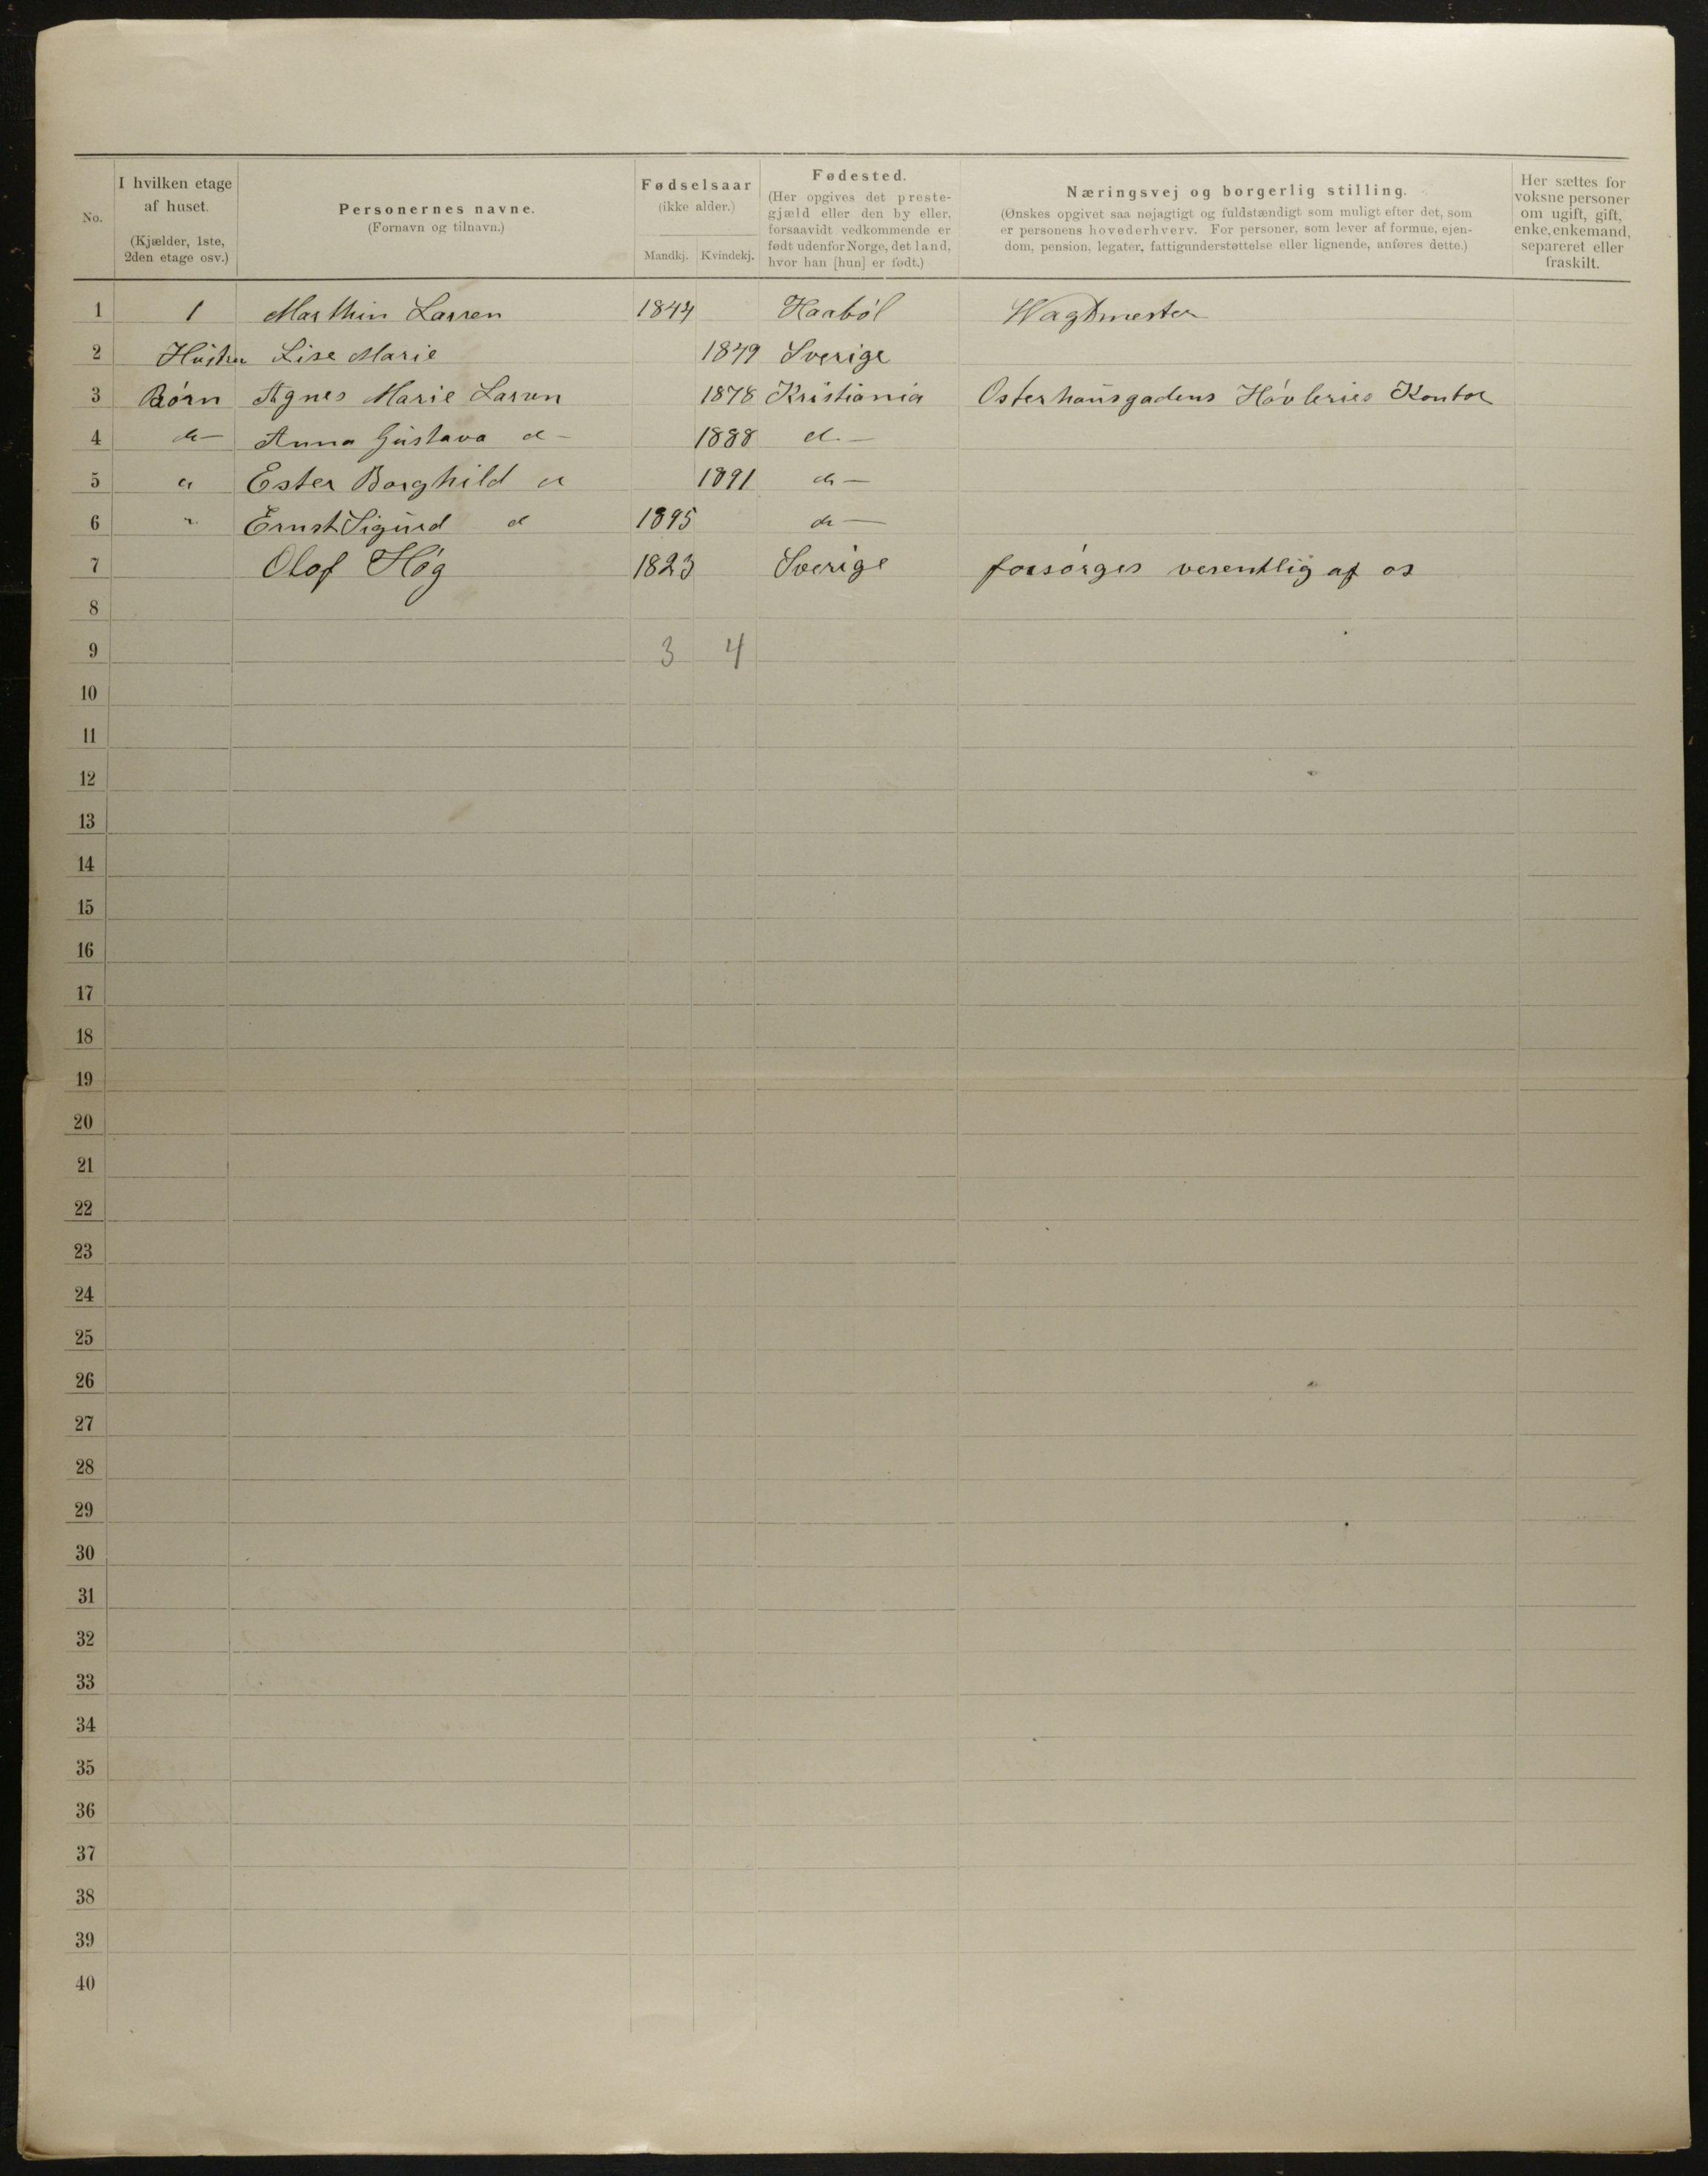 No.
I hvilken etage af huset. (Kjælder, 1ste, 2den etage osv.)
Personernes navne. (Fornavn og tilnavn.)
Fødselsaar (ikke alder.) Mandkj. Kvindekj.
Fødested. (Her opgives det prestegjæld eller den by eller, forsaavidt vedkommende er født udenfor Norge, det land, hvor han [hun] er født.)
Næringsvej og borgerlig stilling.
(Ønskes opgivet saa nøjagtigt og fuldstændigt som muligt efter det, som
er personens hovederhverv. For personer, som lever af formue, ejen-
dom, pension, legater, fattigunderstøttelse eller lignende, anføres dette.)
Her sættes for voksne personer om ugift, gift, enke, enkemand, separeret eller fraskilt.
1 1 Marthin Larsen 1844 Haabøl Wagtmester
2 Hustru Lise Marie 1849 Sverige
3 Børn Agnes Marie Larsen 1878 Kristiania Osterhausgadens Høvleries Kontor
4 do Anna Gustava do 1888 do
5 do Ester Borghild do 1891 do
6 " Ernst Sigurd do 1895 do
7 Olof Høg 1823 Sverige forsørges vesentlig af os
8
9 3 4
10
11
12
13
14
15
16
17
18
19
20
21
22
23
24
25
26
27
28
29
30
31
32
33
34
35
36
37
38
39
40